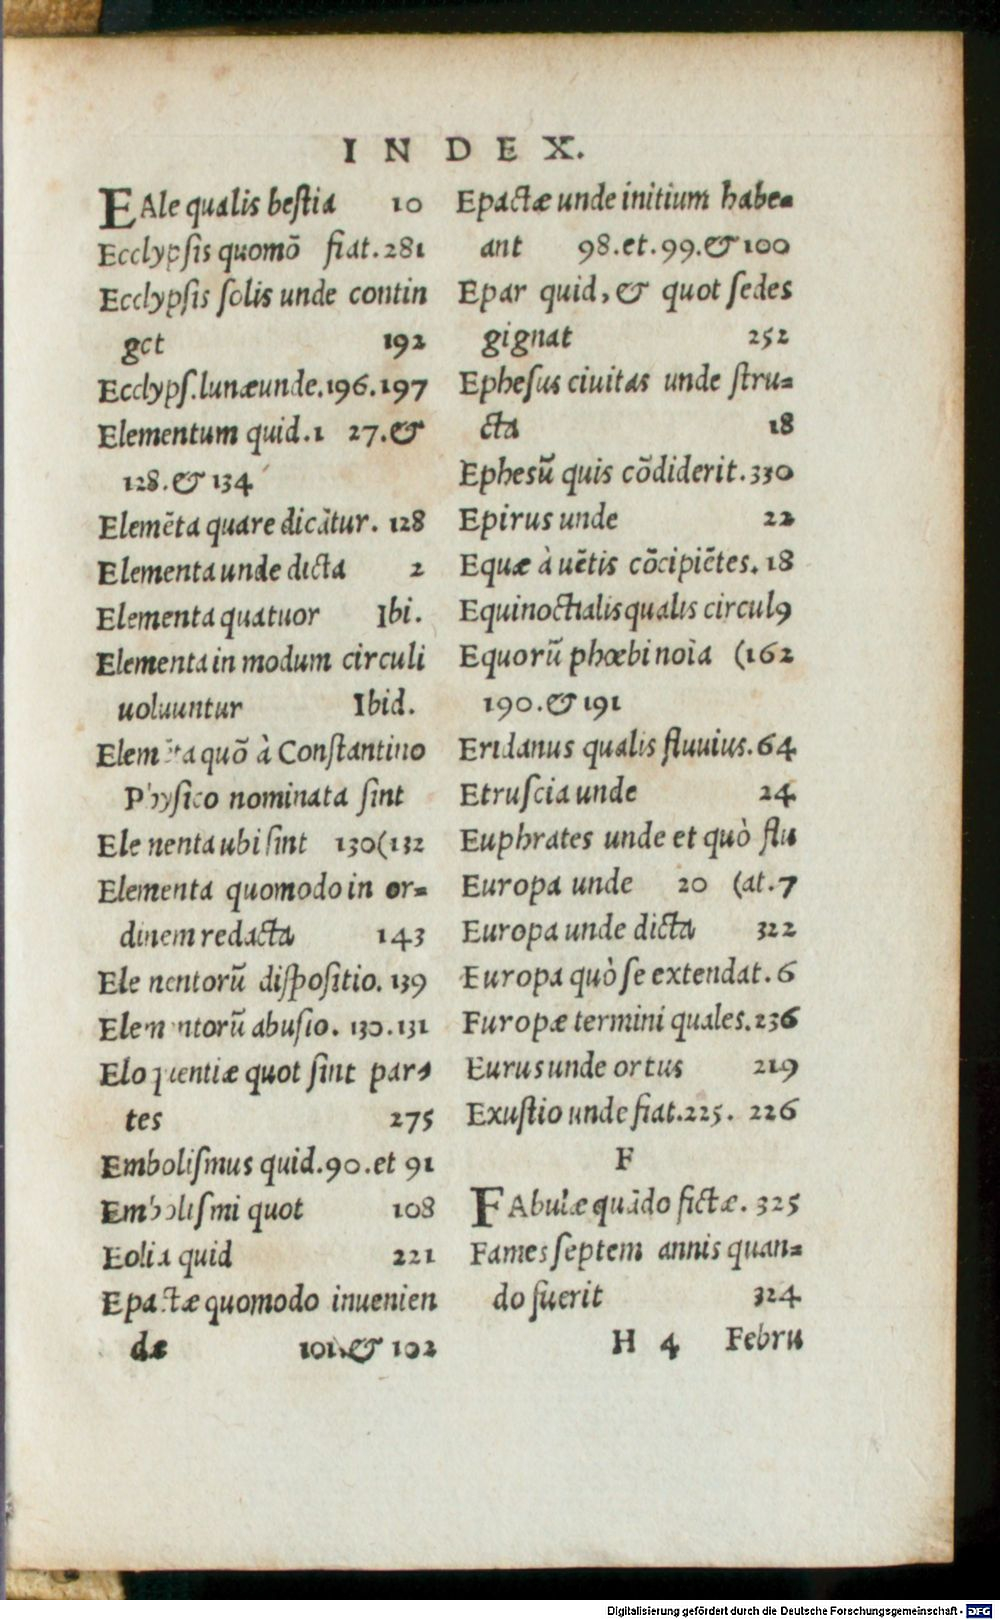 INDEX.
EAle qualis bestia 10
Ecclypsis quomō fiat. 281
Ecclypsis solis unde contin
get 192
Ecclyps. lunæ unde. 196. 197
Elementum quid. 1 27. &
128. & 134
Elemēta quare dicātur. 128
Elementa unde dicta 2
Elementa quatuor Ibi.
Elementa in modum circuli
uoluuntur Ibid.
Elemēta quō à Constantino
Physico nominata sint
Elementa ubi sint 130 (132
Elementa quomodo in or=
dinem redacta 143
Elementorū dispositio. 139
Elementorū abusio. 130. 131
Eloquentiæ quot sint par=
tes 275
Embolismus quid. 90. et 91
Embolismi quot 108
Eolia quid 221
Epactæ quomodo inuenien
dæ 101. & 102
Epactæ unde initium habe=
ant 98. et. 99. & 100
Epar quid, & quot sedes
gignat 252
Ephesus ciuitas unde stru=
cta 18
Ephesū quis cōdiderit. 330
Epirus unde 22
Equæ à uētis cōcipiētes. 18
Equinoctialis qualis circulꝰ
Equorū phœbi noīa (162
190. & 191
Eridanus qualis fluuius. 64
Etruscia unde 24
Euphrates unde et quò flu
Europa unde 20 (at. 7
Europa unde dicta 322
Europa quò se extendat. 6
Europæ termini quales. 236
Eurus unde ortus 219
Exustio unde fiat. 225. 226
F
FAbulæ quādo fictæ. 325
Fames septem annis quan=
do fuerit 324
H 4 Febru
Digitalisierung gefördert durch die Deutsche Forschungsgemeinschaft - DFG